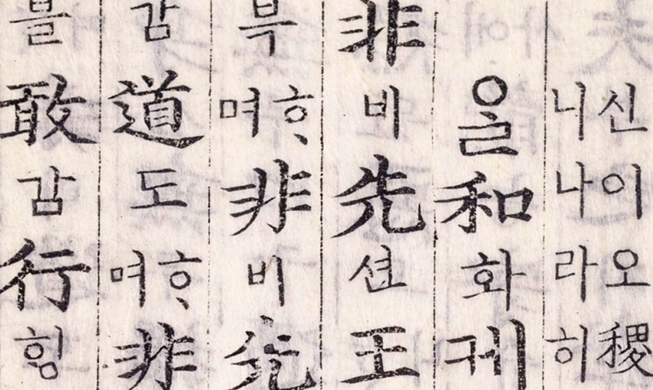 신이오稷
니나라히
ᄋᆞᆯ和화케
非비先션王
ᄒᆞ며非비先
감道도ᄒᆞ며非
블敢감行ᄒᆡᆼ